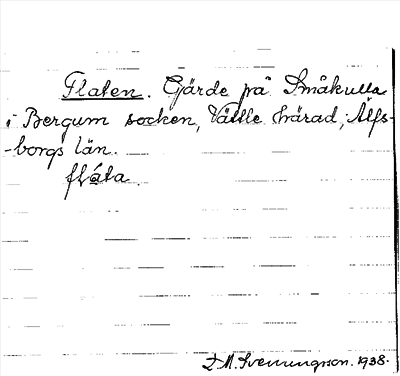 Flaten. Gärde på Småkulla
i Bergum socken, Vättle härad, Älfs-
-borgs län.
flåta.
D. M. Svenungson. 1938.